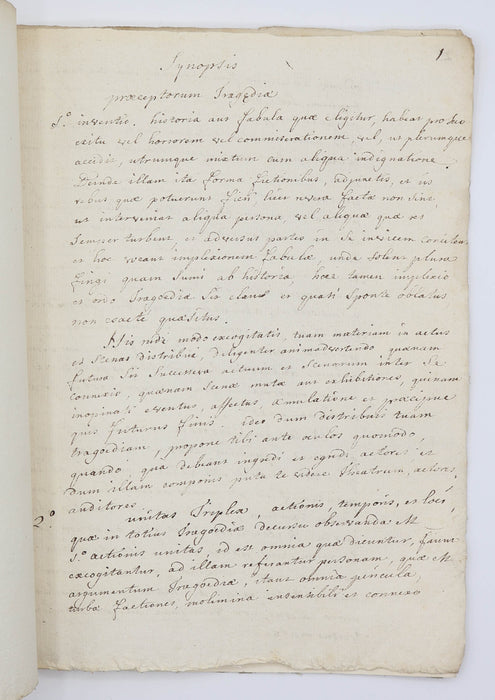 1
Synopsis
præceptorum Tragediæ
1.º inventio, historia aut fabula quæ eligitur, habeat pro suo
exitu vel horrorem vel commiserationem vel, ut plerumque
accidit, utrumque mixtum cum aliqua indignatione.
Deinde illam ita forma fictionibus, adjunctis, et iis
rebus quæ potuerunt fieri licet revera factæ non sint,
ut interveniat aliqua persona, vel aliquæ quæ res
semper turbent et adversas partes in se invicem concitent
et hoc vocant implexionem fabulæ, unde solent plura
fingi quam sumi ab historia hæc tamen implexio
et ordo Tragœdiæ sit clarus et quasi sponte oblatus
non coacte quæsitus.
His rude modo excogitatis, tuam materiam in actus
et scenas distribue, diligenter animadvertendo quænam
futura sit successiva actuum et scenarum inter se
connexio, quænam scenæ mutæ aut exhibitiones, quinam
inopinati eventus, affectus, æmulatione et præcipue
quis futurus finis. ideo dum distribuis tuam
tragœdiam, propone tibi ante oculos quomodo,
quando, qua debeant ingredi et egredi actores et
dum illam componis puta te videre theatrum, actores,
auditores.
2.º unitas triplex, actionis, temporis, et loci,
quæ in totius Tragœdiæ decursu observanda est
1.º actionis unitas, id est omnia quæ dicuntur, fiunt
excogitantur, ad illam referantur personam, quæ est
argumentum Tragœdiæ, itaut omnia pericula,
turbæ factiones, molimina insensibili et connexo